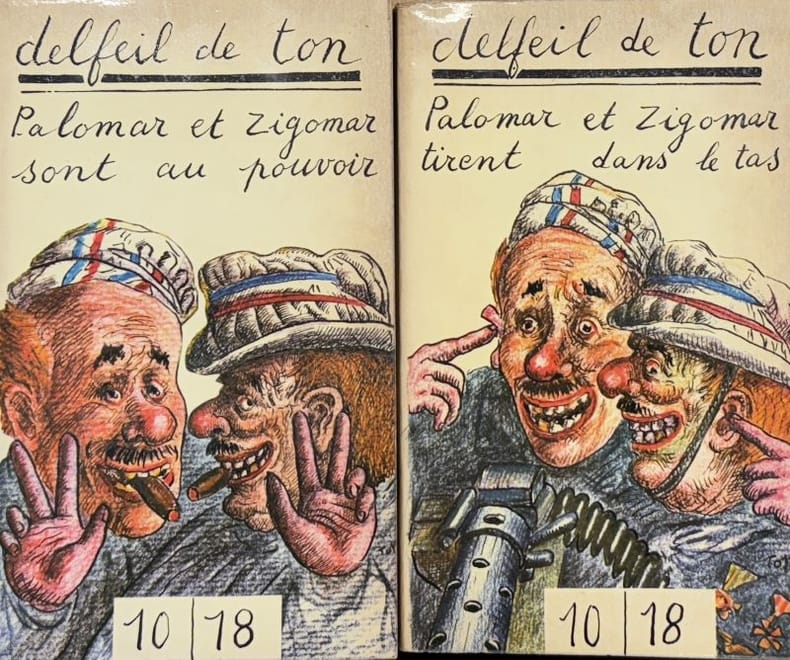 delfeil de ton
Palomar et Zigomar
sont au pouvoir
10 18
delfeil de ton
Palomar et Zigomar
tirent dans le tas
10 18